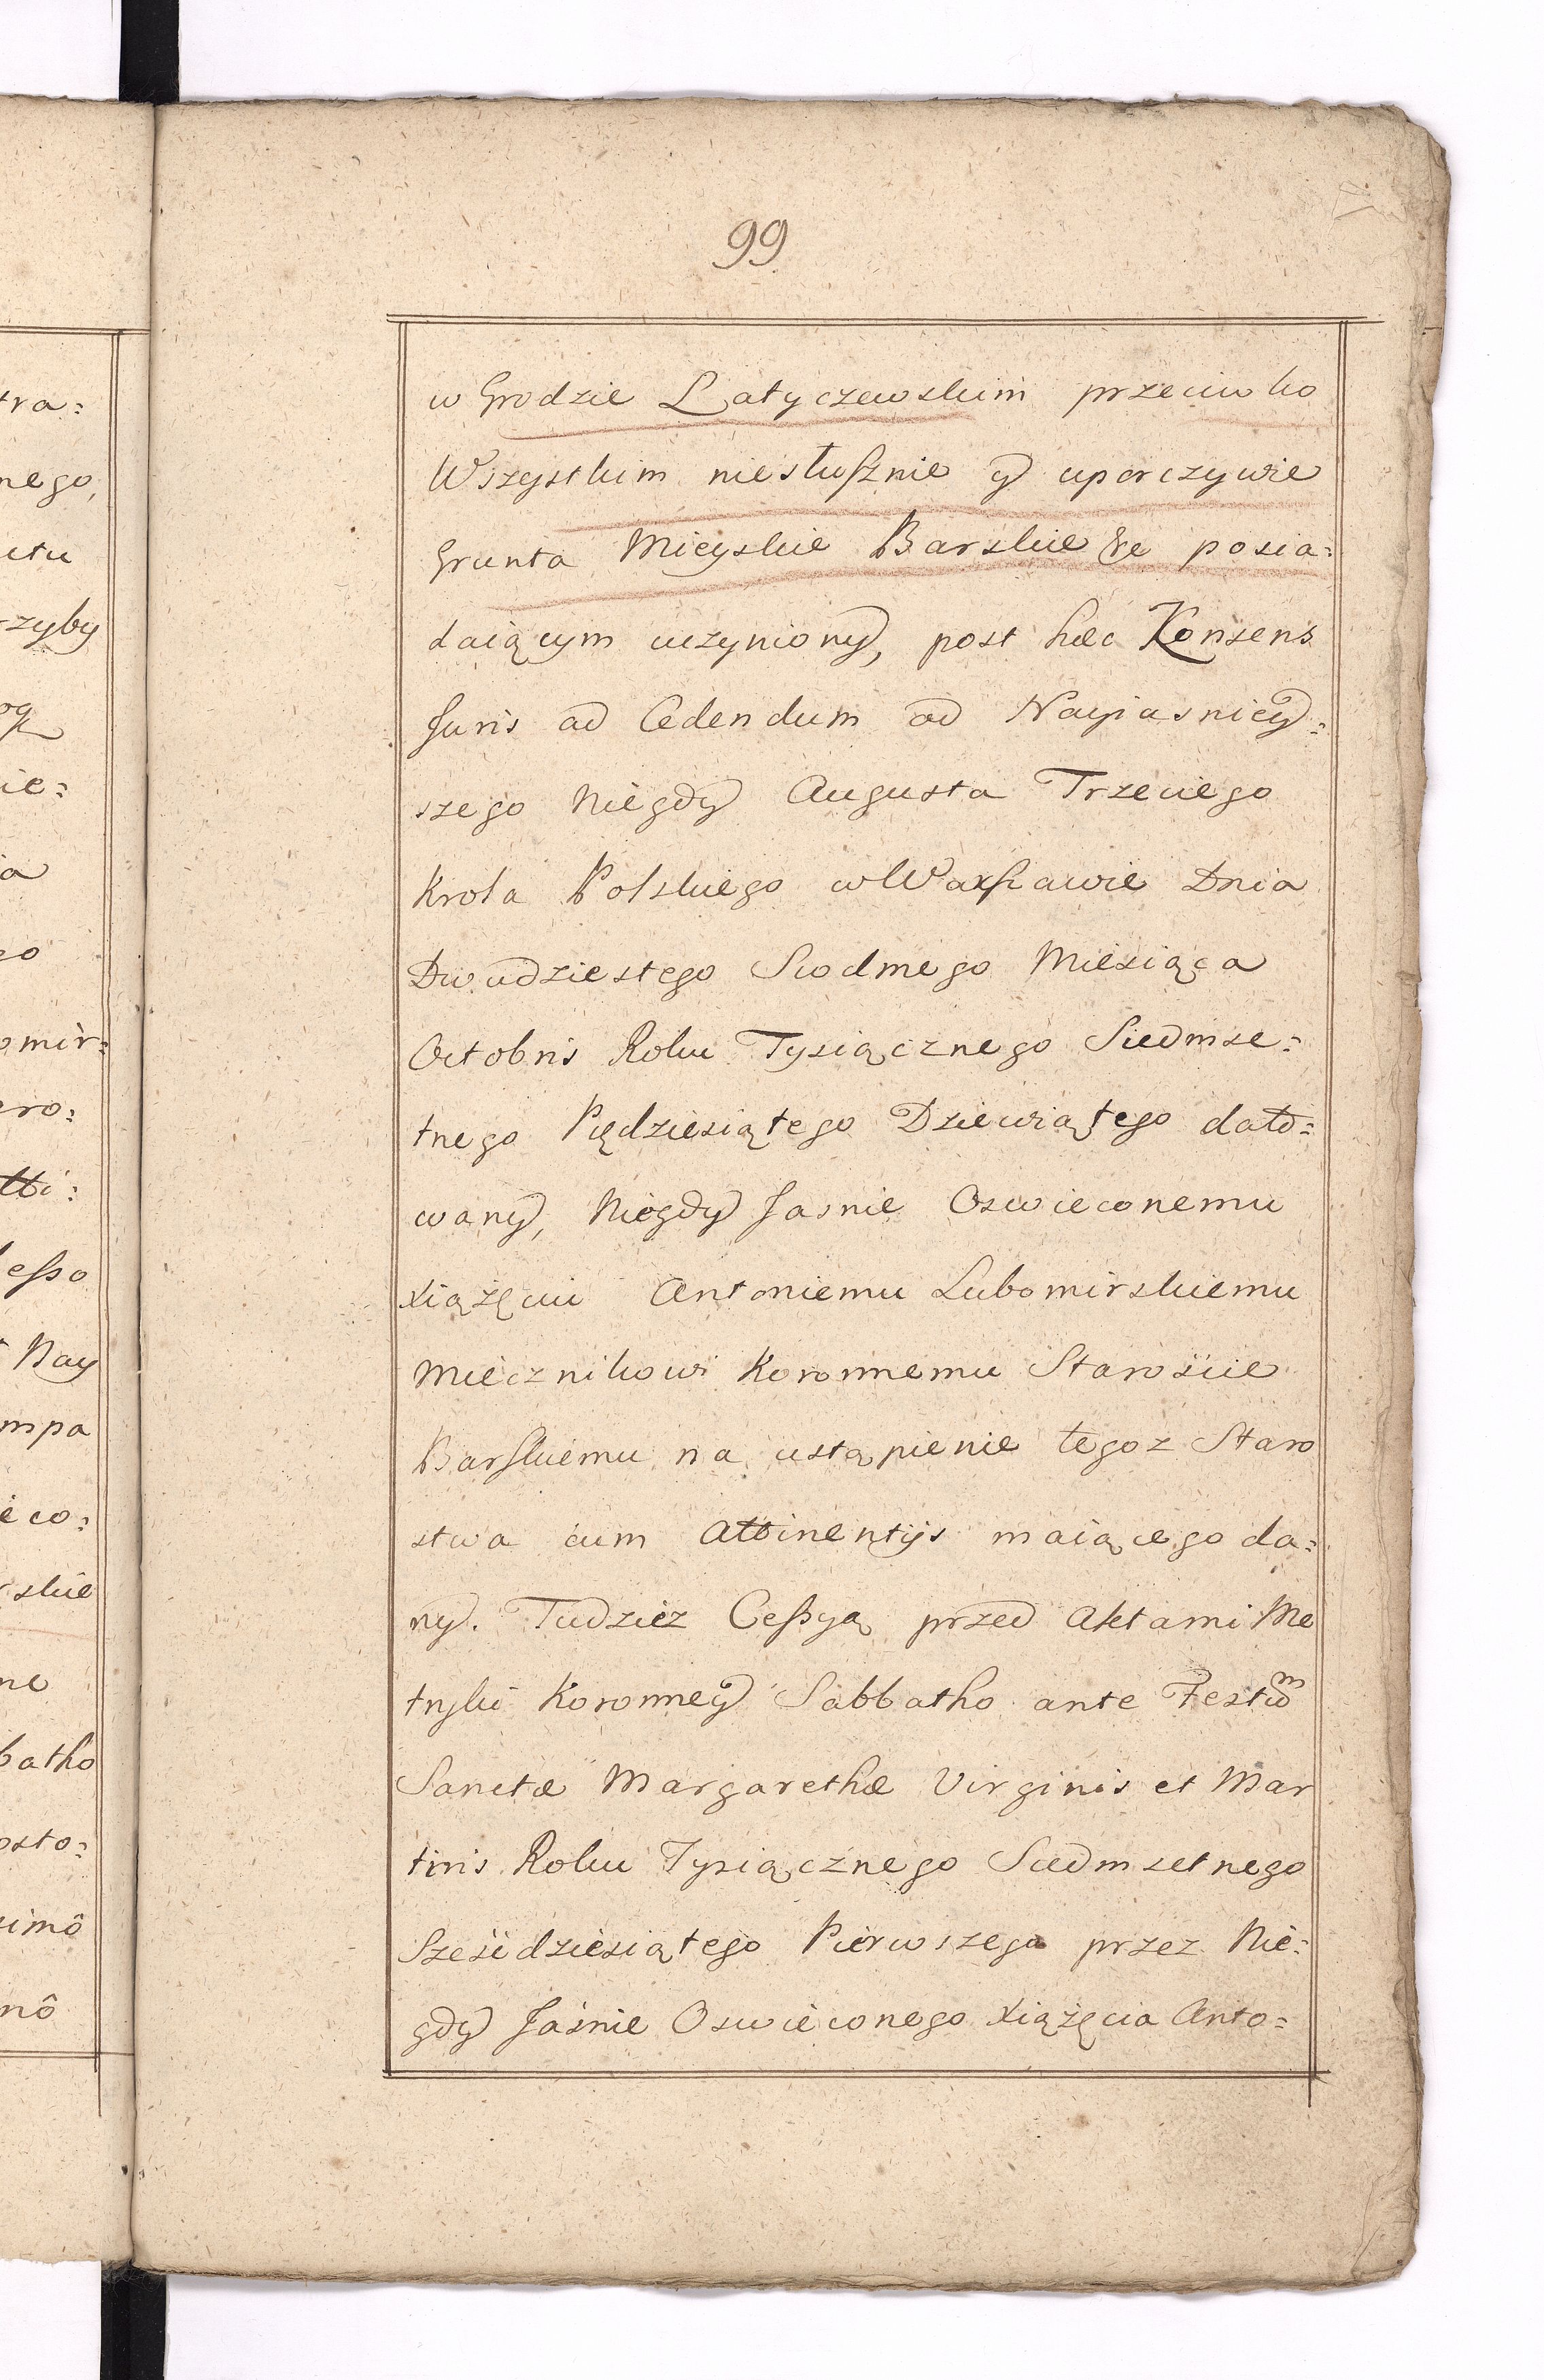 99
tra:
w Grodzie Latyczewskim przeciwko
nego,
Wszystkim niesłusznie y uporczywie
Grunta Mieyskie Barskie &c posia:
zyby
daiącym uczyniony, post hæc Konsens
Juris ad Cedendum ad Nayiasniey:
ie:
szego Niegdy Augusta Trzeciego
Krola Polskiego w Warszawie Dnia
Dwudziestego Siodmego Miesiąca
omir:
Octobris Roku Tysiącznego Siedmse:
tnego Piędziesiątego Dziewiątego dato:
wany, Niegdy Jasnie Oswieconemu
Xiążęciu Antoniemu Lubomirskiemu
Nay
Miecznikowi Koronnemu Staroscie
mpa
Barskiemu na ustąpienie tegoz Staro
eco:
stwa cum Attinentijs maiącego da:
skie
ny. Tudziez Cessyą przed Aktami Me
ne
tryki Koronney Sabbatho ante Festum
batho
Sanctæ Margarethæ Virginis et Mar
osto:
tiris Roku Tysiącznego Siedmsetnego
simô
Sześćdziesiątego Pierwszego przez Nie:
nô
gdy Jaśnie Oswieconego Xiążęcia Anto: